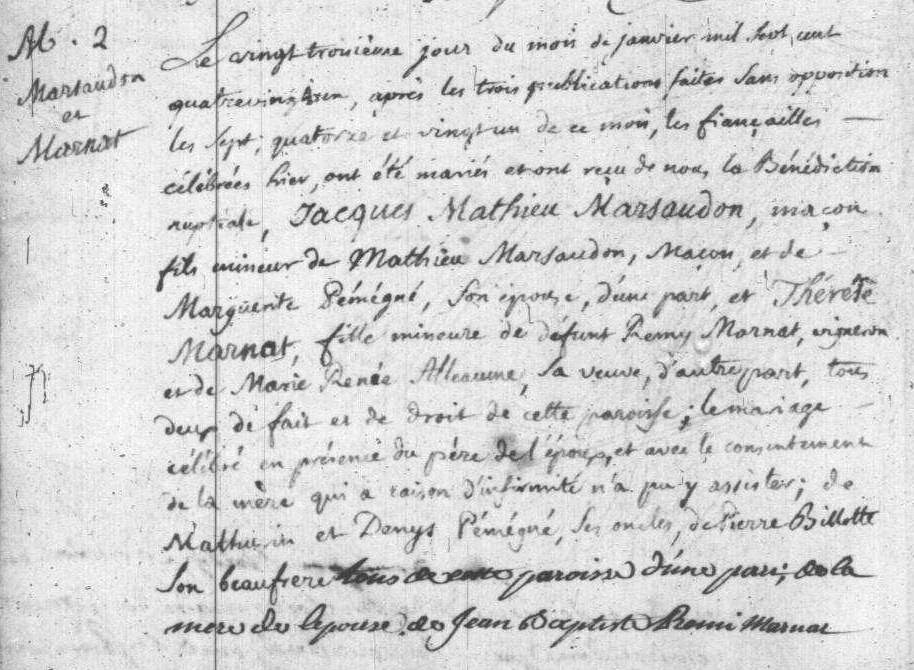 M. 2
Marsaudon
et
Marnat
Le vingt troisième jour du mois de janvier mil sept cent
quatrevingt un, après les trois publications faites sans opposition
les sept, quatorze et vingt un de ce mois, les fiançailles
célébrées hier, ont été mariés et ont reçu de nous la Bénédiction
nuptiale, Jacques Mathieu Marsaudon, maçon
fils mineur de Mathieu Marsaudon, Maçon, et de
Marguerite Pémégné, son épouse, d'une part, et Thérèse
Marnat, fille mineure de défunt Remy Marnat, vigneron
et de Marie Renée Alleaume, sa veuve, d'autre part, tous
deux de fait et de droit de cette paroisse; le mariage
célébré en présence du père de l'époux, et avec le consentement
de la mère qui a raison d'infirmité n'a pu y assister; de
Mathurin et Denys Pémégné, ses oncles, de Pierre Billotte
son beaufrere tous de cette paroisse d'une part; de la
mere de lepouse de Jean Baptiste Remi Marnat